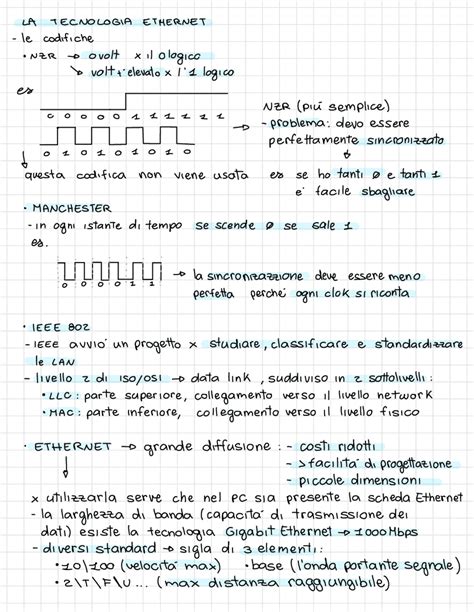 LA TECNOLOGIA ETHERNET
- le codifiche
• NZR → 0 volt x il 0 logico
↘ volt + elevato x l'1 logico
es
0 0 0 0 0 1 1 1 1 1 1
0 1 0 1 0 1 0 1 0
NZR (più semplice)
- problema: devo essere
perfettamente sincronizzato
↓
es se ho tanti 0 e tanti 1
e' facile sbagliare
questa codifica non viene usata
• MANCHESTER
- in ogni istante di tempo se scende 0 se sale 1
es.
0 0 0 0 1
→ la sincronizzazione deve essere meno
perfetta perché ogni clok si riconta
• IEEE 802
- IEEE avviò un progetto x studiare, classificare e standardizzare
le LAN
- livello 2 di ISO/OSI → data link, suddiviso in 2 sottolivelli:
• LLC: parte superiore, collegamento verso il livello network
• MAC: parte inferiore, collegamento verso il livello fisico
• ETHERNET → grande diffusione: - costi ridotti
- > facilità di progettazione
- piccole dimensioni
↓
x utilizzarla serve che nel PC sia presente la scheda Ethernet
- la larghezza di banda (capacità di trasmissione dei
dati) esiste la tecnologia Gigabit Ethernet → 1000 Mbps
- diversi standard → sigla di 3 elementi:
• 10\100 (velocità max) • base (l'onda portante segnale)
• 2\T\F\U... (max distanza raggiungibile)